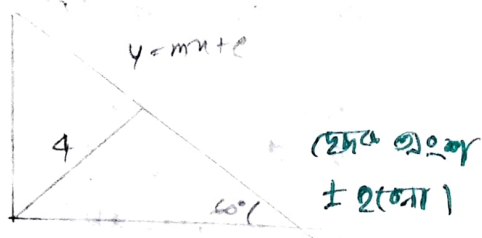 y = mx + c
4
60°
ছেদক অংশ
± হলো।